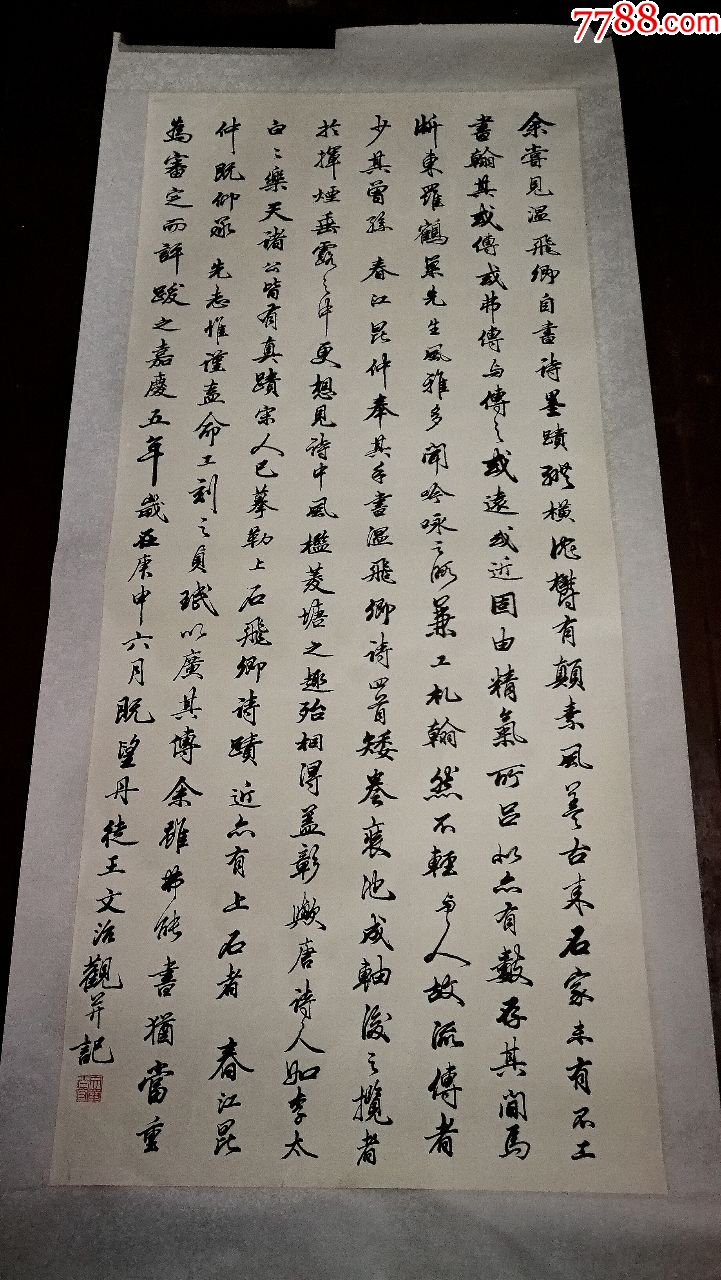 7788.com
余嘗見溫飛卿自書詩墨蹟縱橫沈鬱有顛素風蓋古來石家未有不工
書翰其或傳或弗傳与傳之或遠或近固由精氣所呂然亦有數存其間焉
浙東羅鶴泉先生風雅多聞吟咏之所兼工札翰然不輕与人故流傳者
少其曾孫春江昆仲奉其手書溫飛卿詩四首矮卷裒池成軸後之攬者
於揮煙垂露之中更想見詩中風檻菱塘之趣殆相得益彰嫩唐詩人如李太
白白樂天諸公皆有真蹟宋人已摹勒上石飛卿詩蹟近亦有上石者春江昆
仲既仰承先志惟謹益命工刻之貞珉以廣其傳余雖弗能書猶當重
為審定而評跋之嘉慶五年歲在庚申六月既望丹徒王文治觀并記